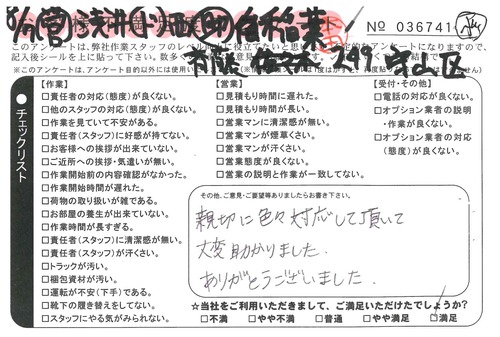 No 036741
このアンケートは、弊社作業スタッフのレベル向上に役立てたいと思い
記入後シールを上に貼って下さい。
※このアンケートは、アンケート目的以外には使用い
守山区
チェックリスト
【作業】
□責任者の対応(態度)が良くない。
□他のスタッフの対応(態度)が良くない。
□作業を見ていて不安がある。
□責任者(スタッフ)に好感が持てない。
□お客様への挨拶が出来ていない。
□ご近所への挨拶・気遣いが無い。
□作業開始前の内容確認がなかった。
□作業開始時間が遅れた。
□荷物の取り扱いが雑である。
□お部屋の養生が出来ていない。
□作業時間が長すぎる。
□責任者(スタッフ)に清潔感が無い。
□責任者(スタッフ)が汗くさい。
□トラックが汚い。
□梱包資材が汚い。
□運転が不安(下手)である。
□靴下の履き替えをしてない。
□スタッフにやる気がみられない。
【営業】
□見積もり時間に遅れた。
□見積もり時間が長い。
□営業マンに清潔感が無い。
□営業マンが煙草くさい。
□営業マンが汗くさい。
□営業態度が良くない。
□営業の説明と作業が一致してない。
【受付・その他】
□電話の対応が良くない。
□オプション業者の説明
・作業が良くない。
□オプション業者の対応
(態度)が良くない。
その他、ご意見・ご要望等ありましたらお書き下さい。
親切に色々対応して頂いて
大変助かりました.
ありがとうございました.
☆当社をご利用いただきまして、ご満足いただけたでしょうか?
□不満 □やや不満 □普通 □やや満足 □満足